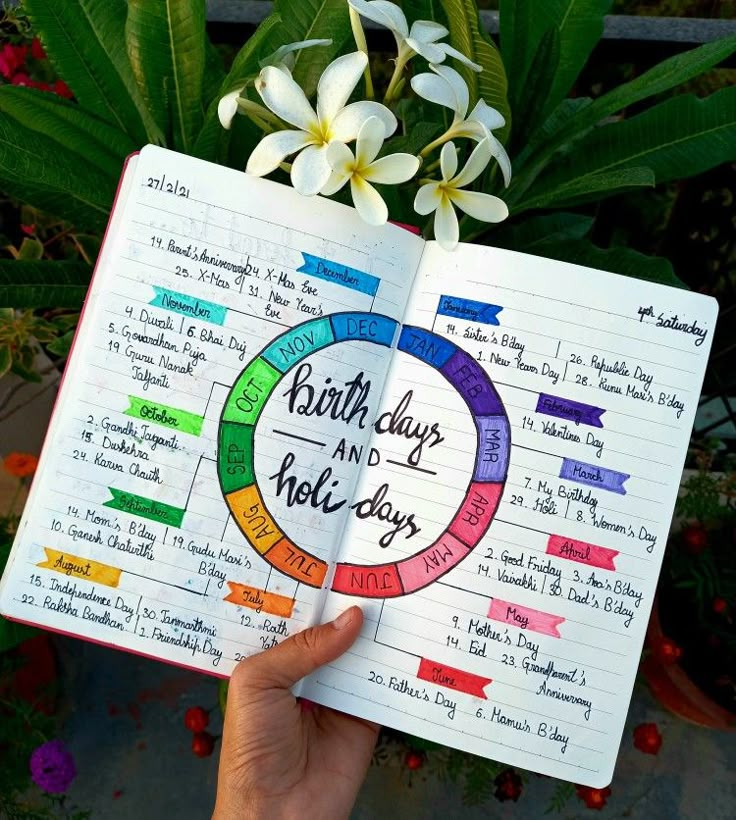 27/2/21
December
14. Parent's Anniversary
24. X-Mas Eve
25. X-Mas
31. New Year's
Eve
November
4. Diwali
6. Bhai Duj
5. Govardhan Puja
19. Guru Nanak
Jayanti
October
2. Gandhi Jayanti
15. Dushehra
24. Karva Chauth
September
14. Mom's B'day
19. Gudu Mari's
B'day
10. Ganesh Chaturthi
August
15. Independence Day
30. Janmasthmi
22. Raksha Bandhan
1. Friendship Day
July
12. Rath
4th Saturday
January
14. Sister's B'day
1. New Years Day
26. Republic Day
28. Kunu Mari's B'day
February
14. Valentines Day
March
7. My Birthday
29. Holi
8. Women's Day
April
2. Good Friday
3. Ava's B'day
14. Vaisakhi
30. Dad's B'day
May
9. Mother's Day
14. Eid
23. Grandparent's
Anniversary
June
20. Father's Day
6. Mamu's B'day
JAN
FEB
MAR
APR
MAY
JUN
JUL
AUG
SEP
OCT
NOV
DEC
birthdays
AND
holidays